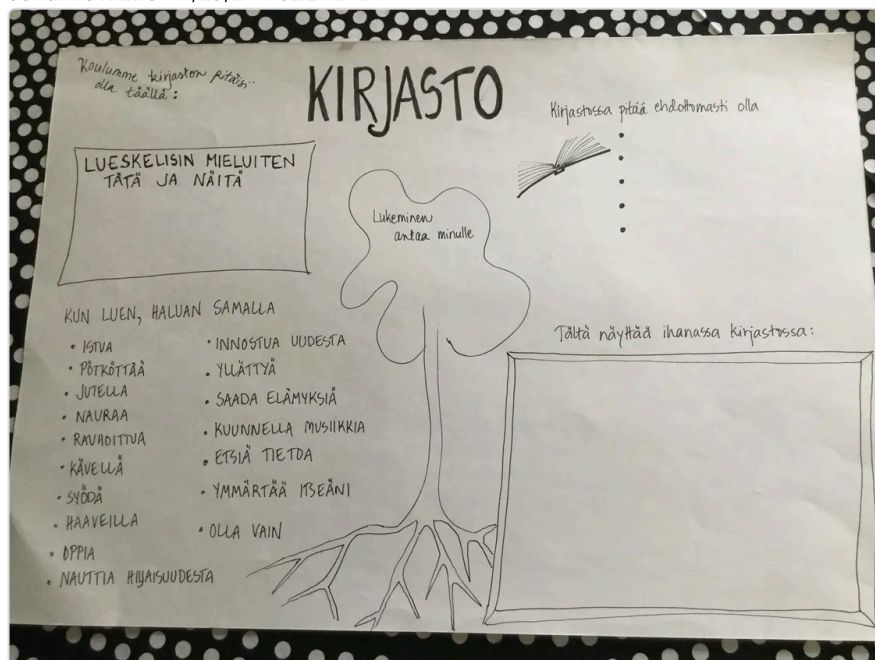 Koulumme kirjaston pitäisi
olla täällä:
KIRJASTO
Kirjastossa pitää ehdottomasti olla
LUESKELISIN MIELUITEN
TÄTÄ JA NÄITÄ
Lukeminen
antaa minulle
KUN LUEN, HALUAN SAMALLA
• ISTUA
• PÖTKÖTTÄÄ
• JUTELLA
• NAURAA
• RAUHOITTUA
• KÄVELLÄ
• SYÖDÄ
• HAAVEILLA
• OPPIA
• NAUTTIA HILJAISUUDESTA
• INNOSTUA UUDESTA
• YLLÄTTYÄ
• SAADA ELÄMYKSIÄ
• KUUNNELLA MUSIIKKIA
• ETSIÄ TIETOA
• YMMÄRTÄÄ ITSEÄNI
• OLLA VAIN
Tältä näyttää ihanassa kirjastossa: